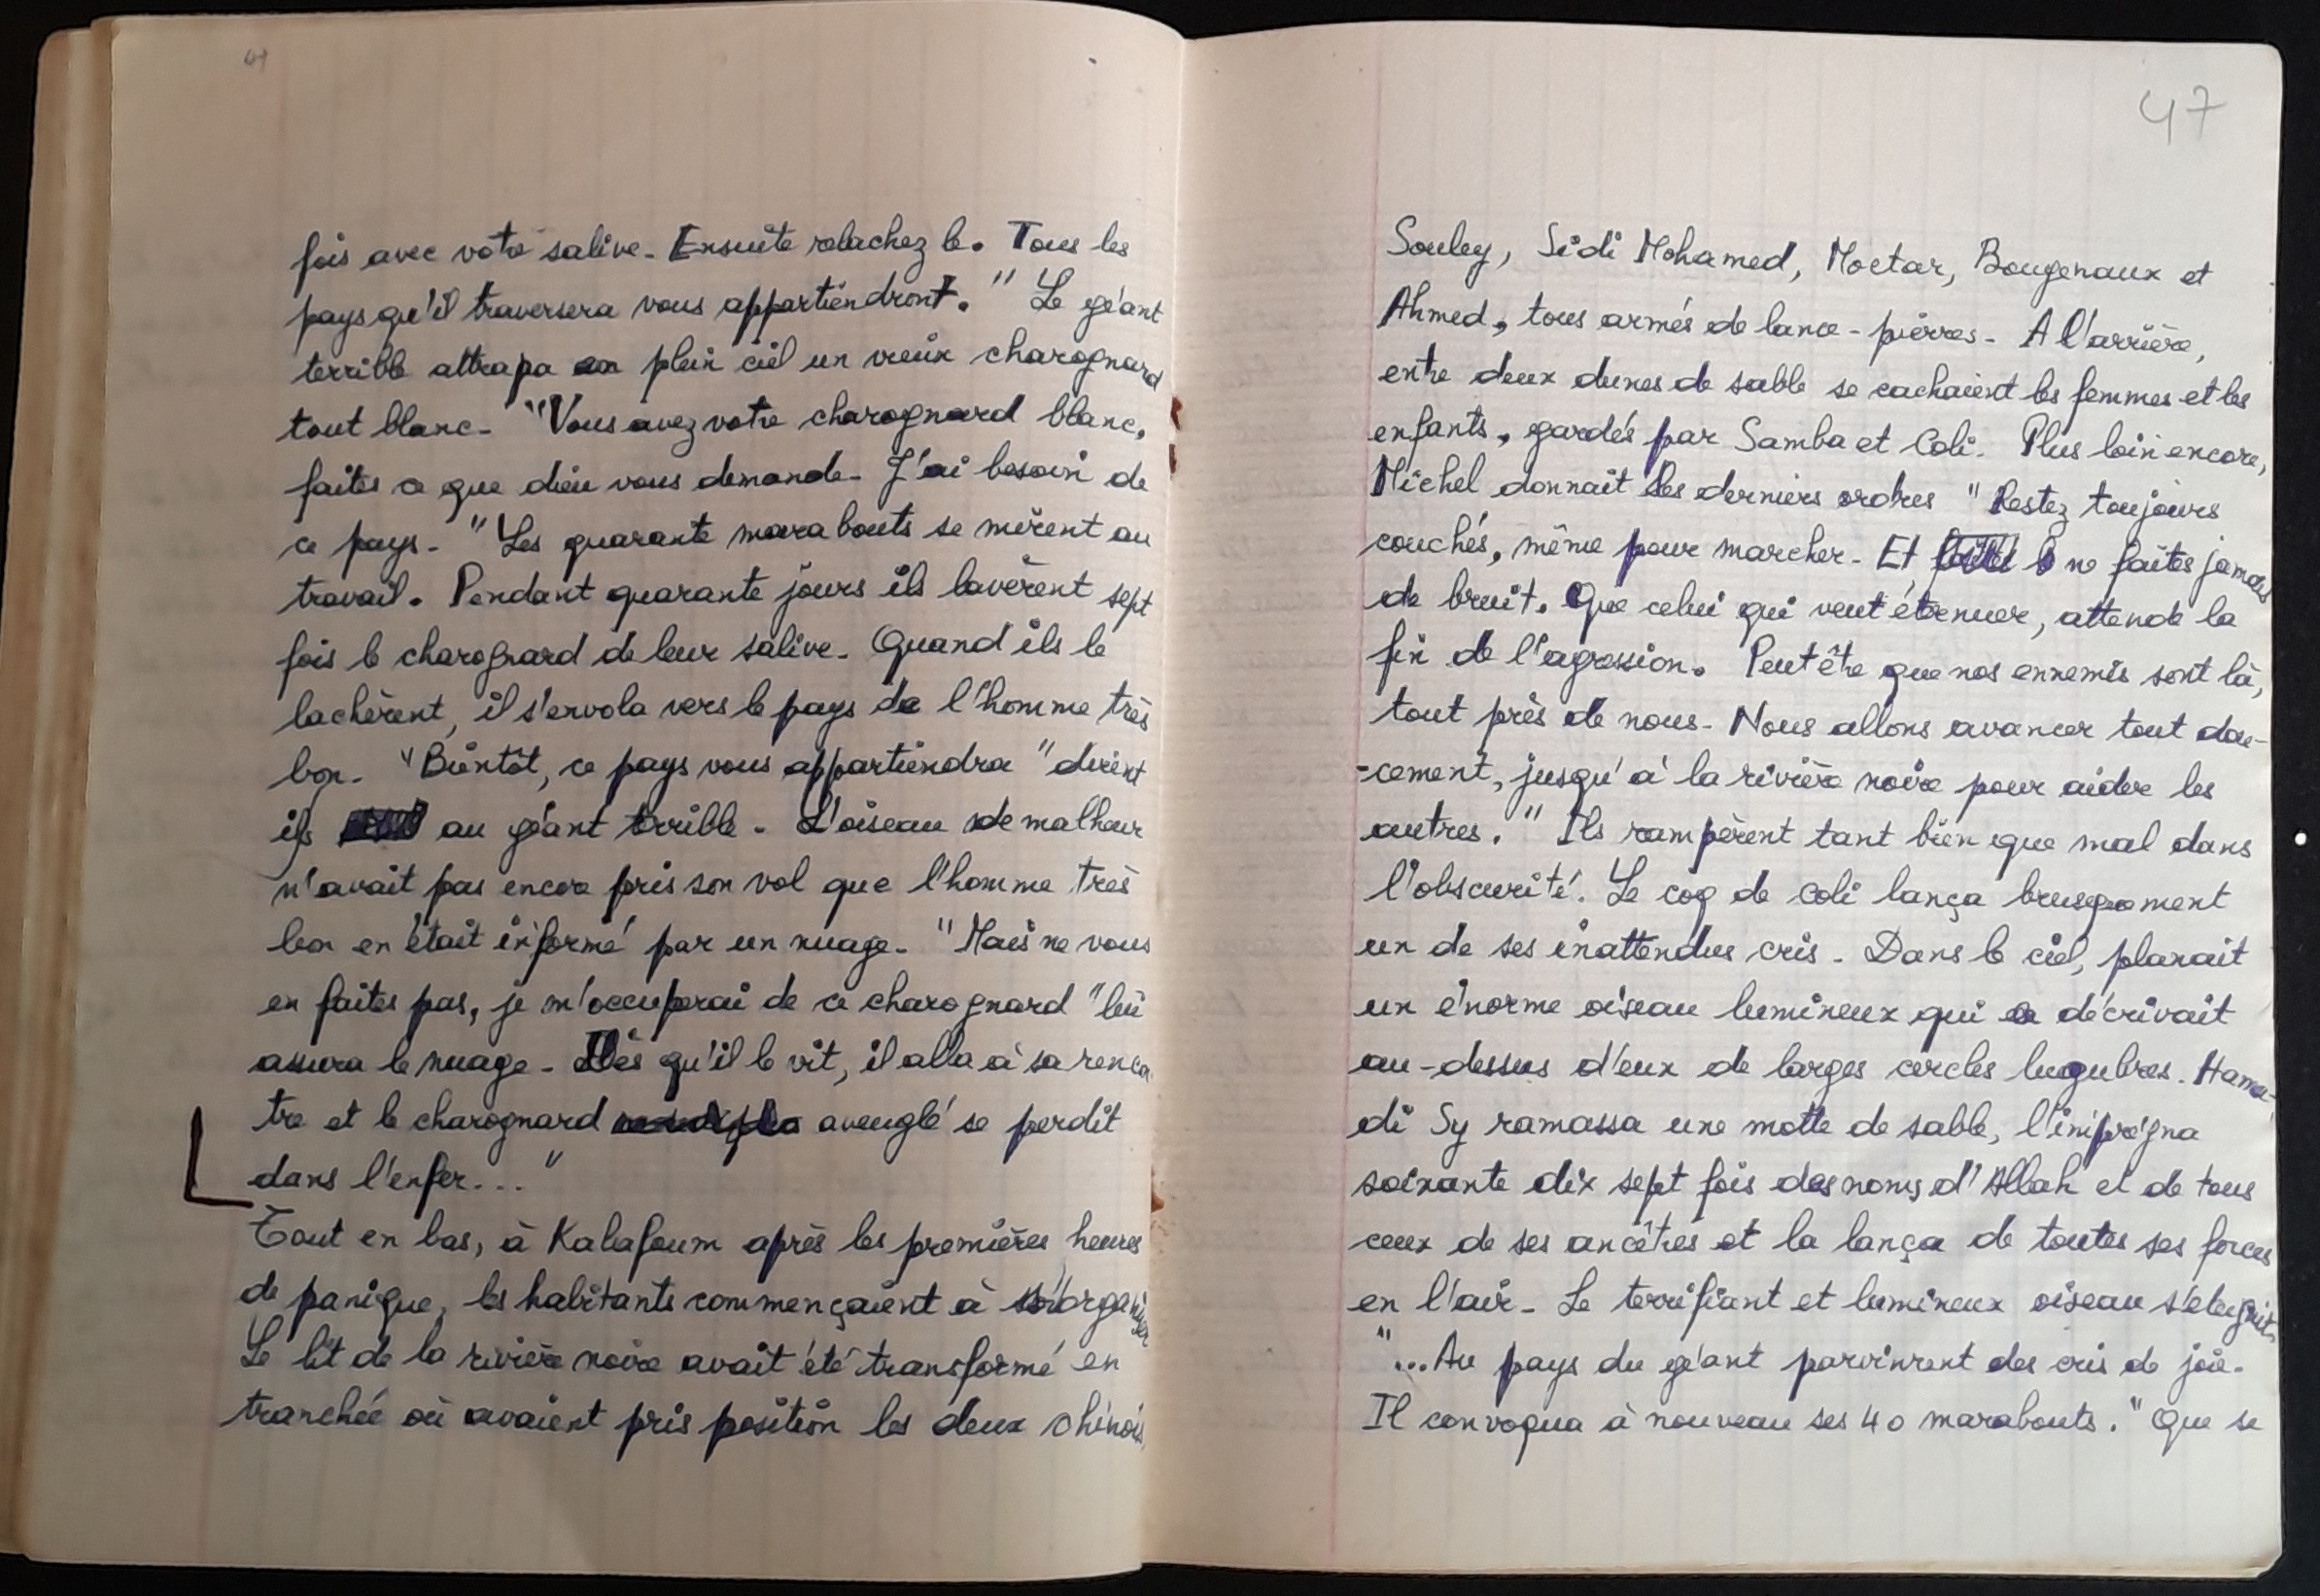 fois avec votre salive. Ensuite relachez le. Tous les
pays qu'il traversera vous appartiendront." Le géant
terrible attrapa en plein ciel un vieux charognard
tout blanc. "Vous avez votre charognard blanc,
faites ce que dieu vous demande. J'ai besoin de
ce pays." Les quarante marabouts se mirent au
travail. Pendant quarante jours ils lavèrent sept
fois le charognard de leur salive. Quand ils le
lachèrent, il s'envola vers le pays de l'homme très
bon. "Bientôt, ce pays vous appartiendra" dirent
ils au géant terrible. L'oiseau de malheur
n'avait pas encore pris son vol que l'homme très
bon en était informé par un nuage. "Mais ne vous
en faites pas, je m'occuperai de ce charognard" lui
assura le nuage. Dès qu'il le vit, il alla à sa rencon
tre et le charognard aveuglé se perdit
dans l'enfer..."
Tout en bas, à Kalafoum après les premières heures
de panique, les habitants commençaient à s'organiser
Le lit de la rivière noire avait été transformé en
tranchée où avaient pris position les deux chinois,
47
Souley, Sidi Mohamed, Moctar, Bougenaux et
Ahmed, tous armés de lance-pierres. A l'arrière,
entre deux dunes de sable se cachaient les femmes et les
enfants, gardés par Samba et Coli. Plus loin encore,
Michel donnait les derniers ordres "Restez toujours
couchés, même pour marcher. Et ne faites jamais
de bruit. Que celui qui veut éternuer, attende la
fin de l'agression. Peut être que nos ennemis sont là,
tout près de nous. Nous allons avancer tout dou-
-cement, jusqu'à la rivière noire pour aider les
autres." Ils rampèrent tant bien que mal dans
l'obscurité. Le coq de coli lança brusquement
un de ses inattendus cris. Dans le ciel, planait
un énorme oiseau lumineux qui décrivait
au-dessus d'eux de larges cercles lugubres. Hama-
di Sy ramassa une motte de sable, l'imprégna
soixante dix sept fois des noms d'Allah et de tous
ceux de ses ancêtres et la lança de toutes ses forces
en l'air. Le terrifiant et lumineux oiseau s'éteignit.
"...Au pays du géant parvinrent des cris de joie.
Il convoqua à nouveau ses 40 marabouts. "Que se